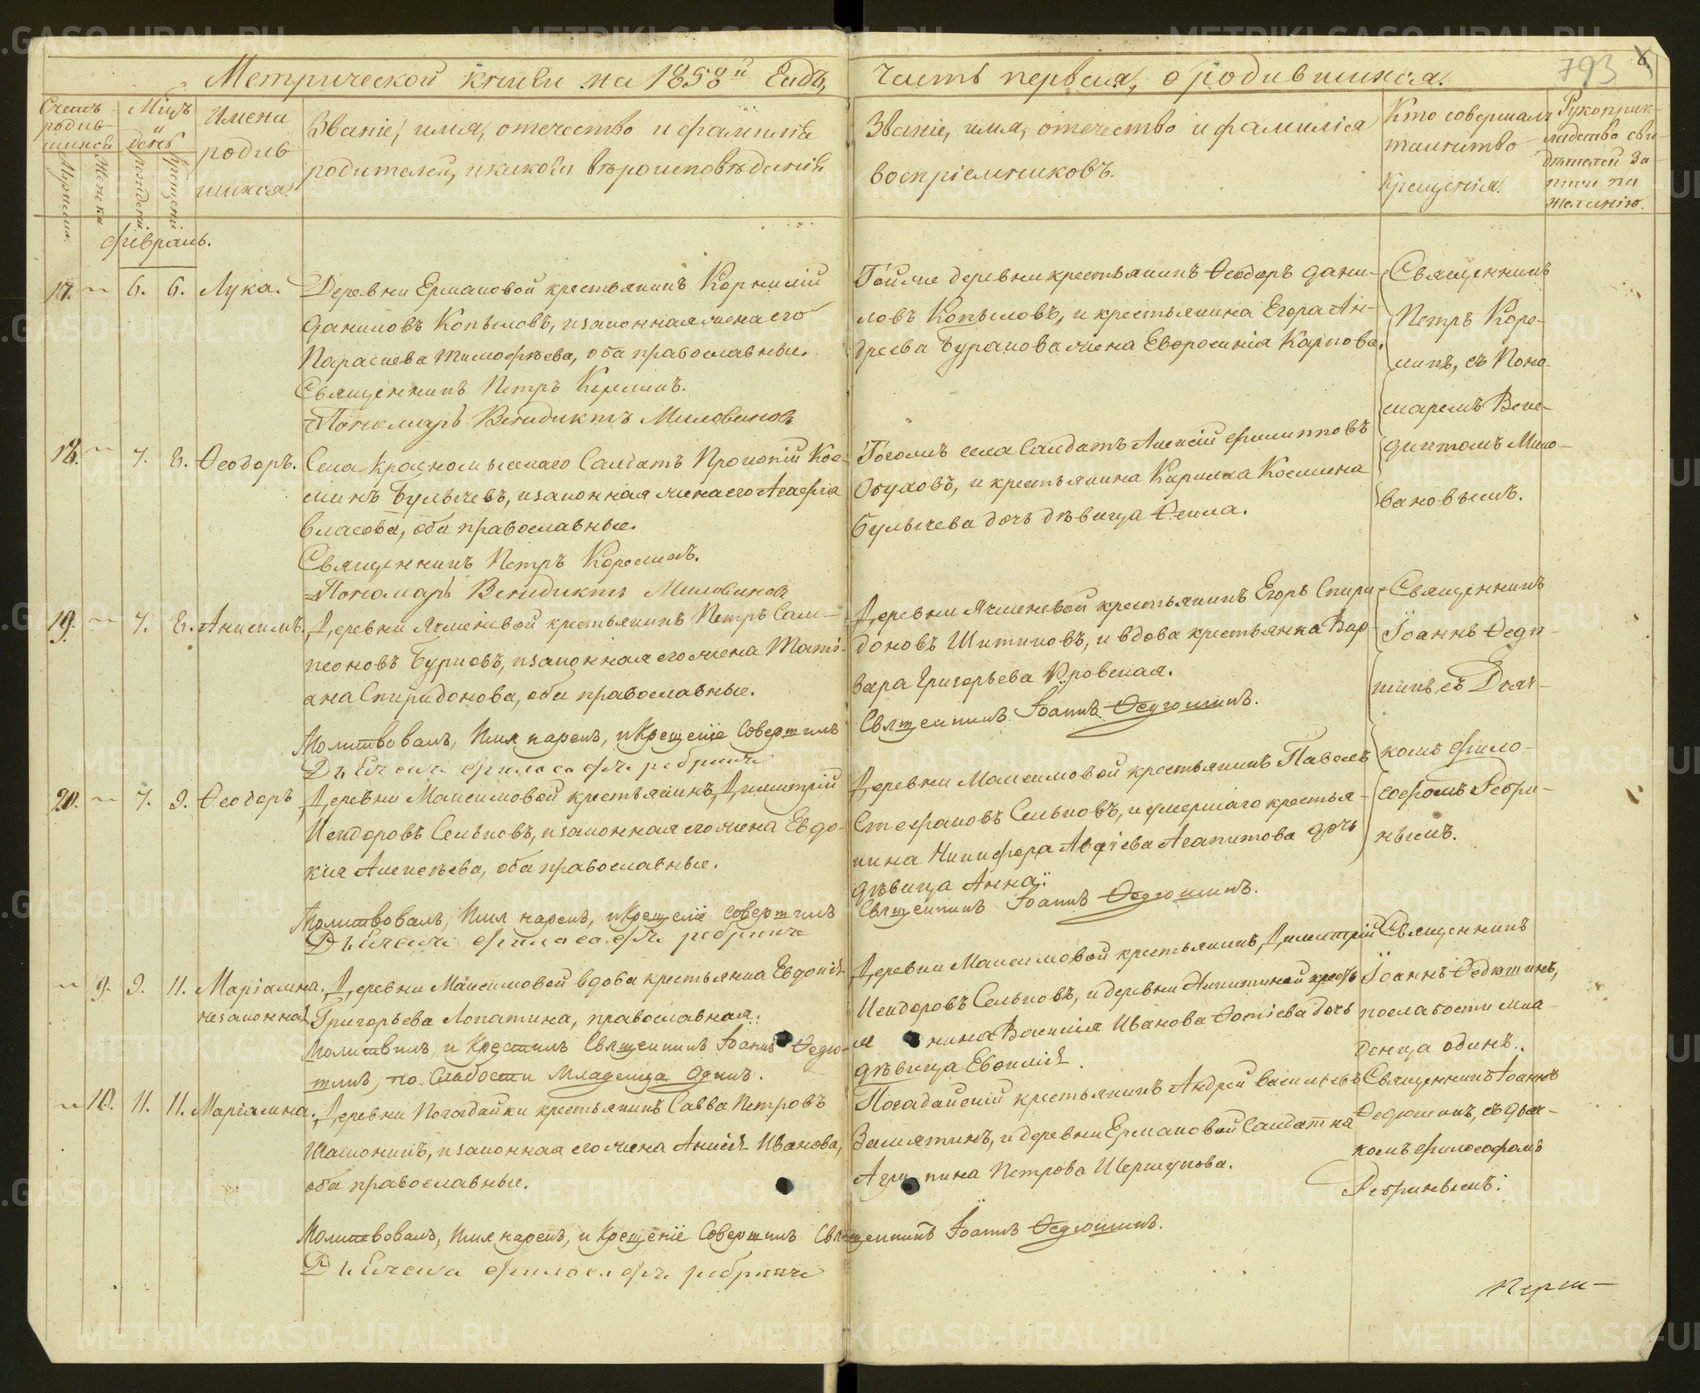 Метрической книги на 1858й Годъ,
часть первая, о родившихся.
793
Счетъ родив-
шихся
Мужеска.
Женска
Мцъ
и
день
рожденія
крещенія
Имена
родив
шихся
Званіе, имя, отечество и фамилія
родителей, и какого вѣроисповѣданія
Званіе, имя, отечество и фамилія
воспріемниковъ.
Кто совершалъ
таинство
Крещенія.
Рукоприк-
ладство сви-
дѣтелей за-
писи по
желанію.
Февраль.
17. 6. 6. Лука.
Деревни Ермаковой крестьянинъ Корнилій
Даниловъ Копыловъ, и законная жена его
Параскева Тимофѣева, оба православные.
Священникъ Петръ Коремин.
Пономарь Венидиктъ Миловановъ
Тойже деревни крестьянинъ Ѳеодоръ Дани-
ловъ Копыловъ, и крестьянина Егора Ан-
дреева Буракова жена Евфросинія Карпова.
Священникъ
Петръ Коре-
минъ, съ Поно-
маремъ Вене-
диктомъ Мило-
вановымъ.
18. 7. 8. Ѳеодоръ.
Села Красномысскаго Салдатъ Прокопій Кос-
минъ Булычевъ, и законная жена его Агафія
Власова, оба православные.
Священникъ Петръ Кореминъ.
Пономарь Венидиктъ Миловановъ
Тогожъ села Салдатъ Алексій Филипповъ
Обуховъ, и крестьянина Кирилла Космина
Булычева дочь дѣвица Ѳекла.
19. 7. 8. Анисимъ.
Деревни Ячменевой крестьянинъ Петръ Сам-
псоновъ Бурковъ, и законная его жена Таті-
ана Спиридонова, оба православные.
Молитвовалъ, Имя нарекъ, и Крещеніе Совершилъ
Дьячекъ философъ ребринъ
Деревни Ячменевой крестьянинъ Егоръ Спири-
доновъ Шитиковъ, и вдова крестьянка Вар-
вара Григорьева
Священникъ Іоаннъ Ѳедюшинъ.
Священникъ
Іоаннъ Ѳедю-
шинъ съ Дьяч-
комъ Фило-
софомъ Ребри-
нымъ.
20. 7. 9. Ѳеодоръ
Деревни Максимовой крестьянинъ, Димитрій
Исидоровъ Сельковъ, и законная его жена Евдо-
кия Алексѣева, оба православные.
Молитвовалъ, Имя нарекъ, и Крещеніе совершилъ
Дьячекъ философъ ребринъ
Деревни Максимовой крестьянинъ Павелъ
Стефановъ Сельковъ, и умершаго крестья-
нина Никифора Авдіева Агапитова дочь
дѣвица Анна.
Священникъ Іоаннъ Ѳедюшинъ.
9. 9. 11. Маріамна.
незаконная
Деревни Максимовой вдова крестьянка Евдокія
Григорьева Лопатина, православная.
Молитвилъ, и Крестилъ Священникъ Іоаннъ Ѳедю-
шинъ, по Слабости Младенца Одинъ.
Деревни Максимовой крестьянинъ, Димитрій
Исидоровъ Сельковъ, и деревни Никитиной кресть
янина Василія Иванова Фотіева дочь
дѣвица Евфимія.
Священникъ
Іоаннъ Ѳедюшинъ,
по слабости мла-
денца одинъ.
10. 11. 11. Маріамна.
Деревни Погадайки крестьянинъ Савва Петровъ
Шамонинъ, и законная его жена Анисія Иванова,
оба православные.
Молитвовалъ, Имя нарекъ, и Крещеніе Совершилъ Священникъ Іоаннъ Ѳедюшинъ.
Дьячекъ философъ ребринъ
Погадайскій крестьянинъ Андрей Васильевъ
Замятинъ, и деревни Ермаковой Салдатка
Агрипина Петрова Шершукова.
Священникъ Іоаннъ
Ѳедюшинъ, съ дьяч-
комъ Философомъ
Ребринымъ.